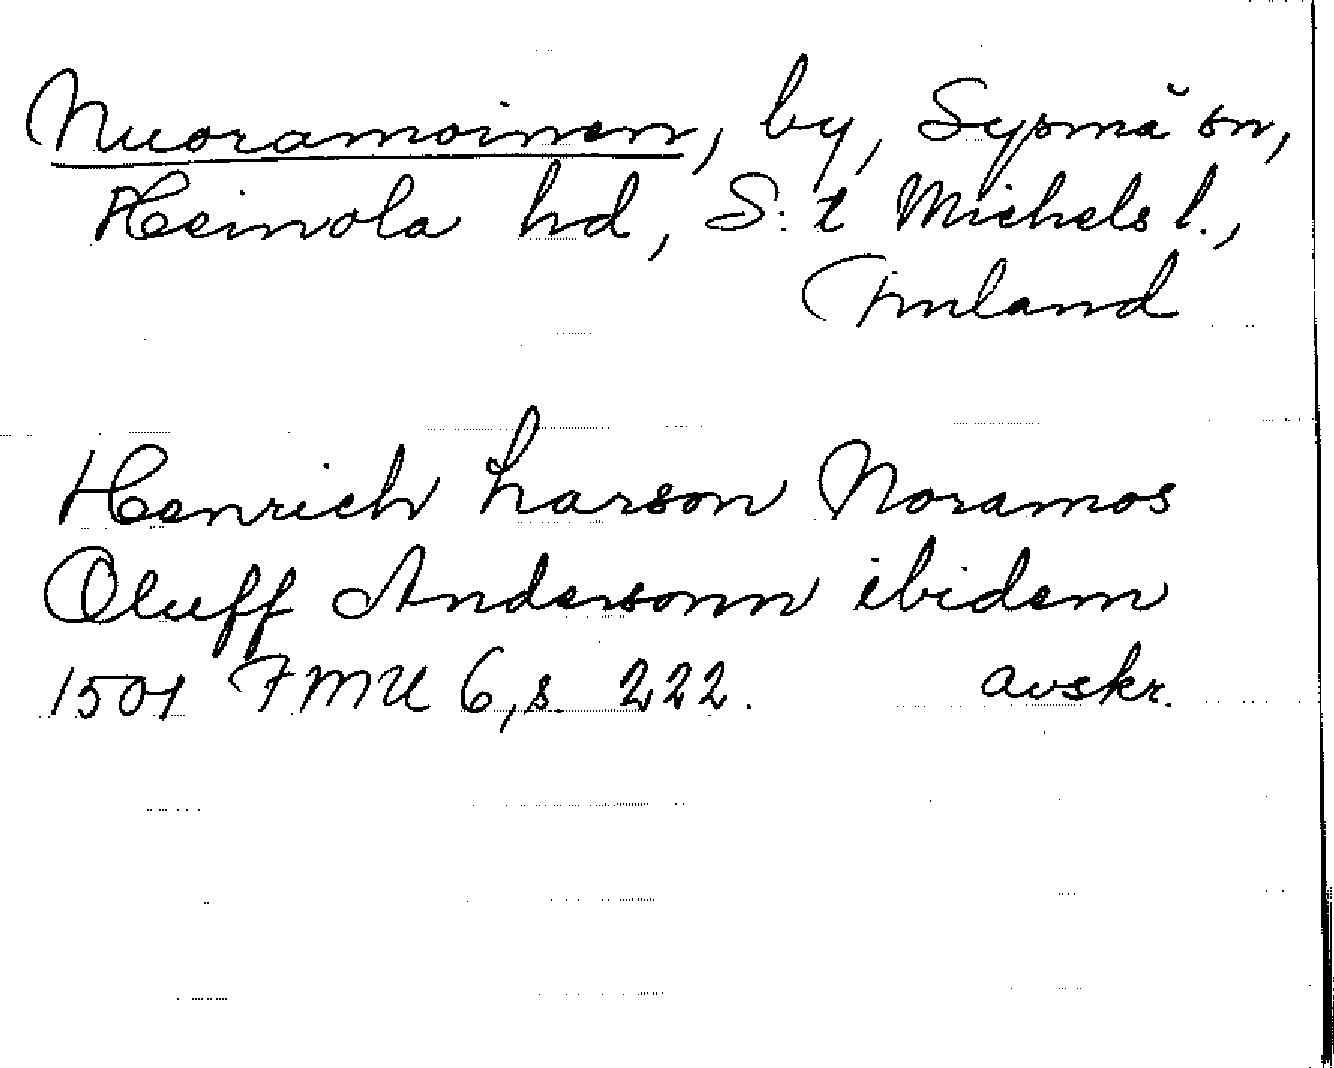 Nuoramoinen, by, Sysmä sn,
Heinola hd, S:t Michels l.,
Finland
Henrich Larson Noramos
Oluff Andersonn ibidem
1501 FMU 6, s. 222. avskr.